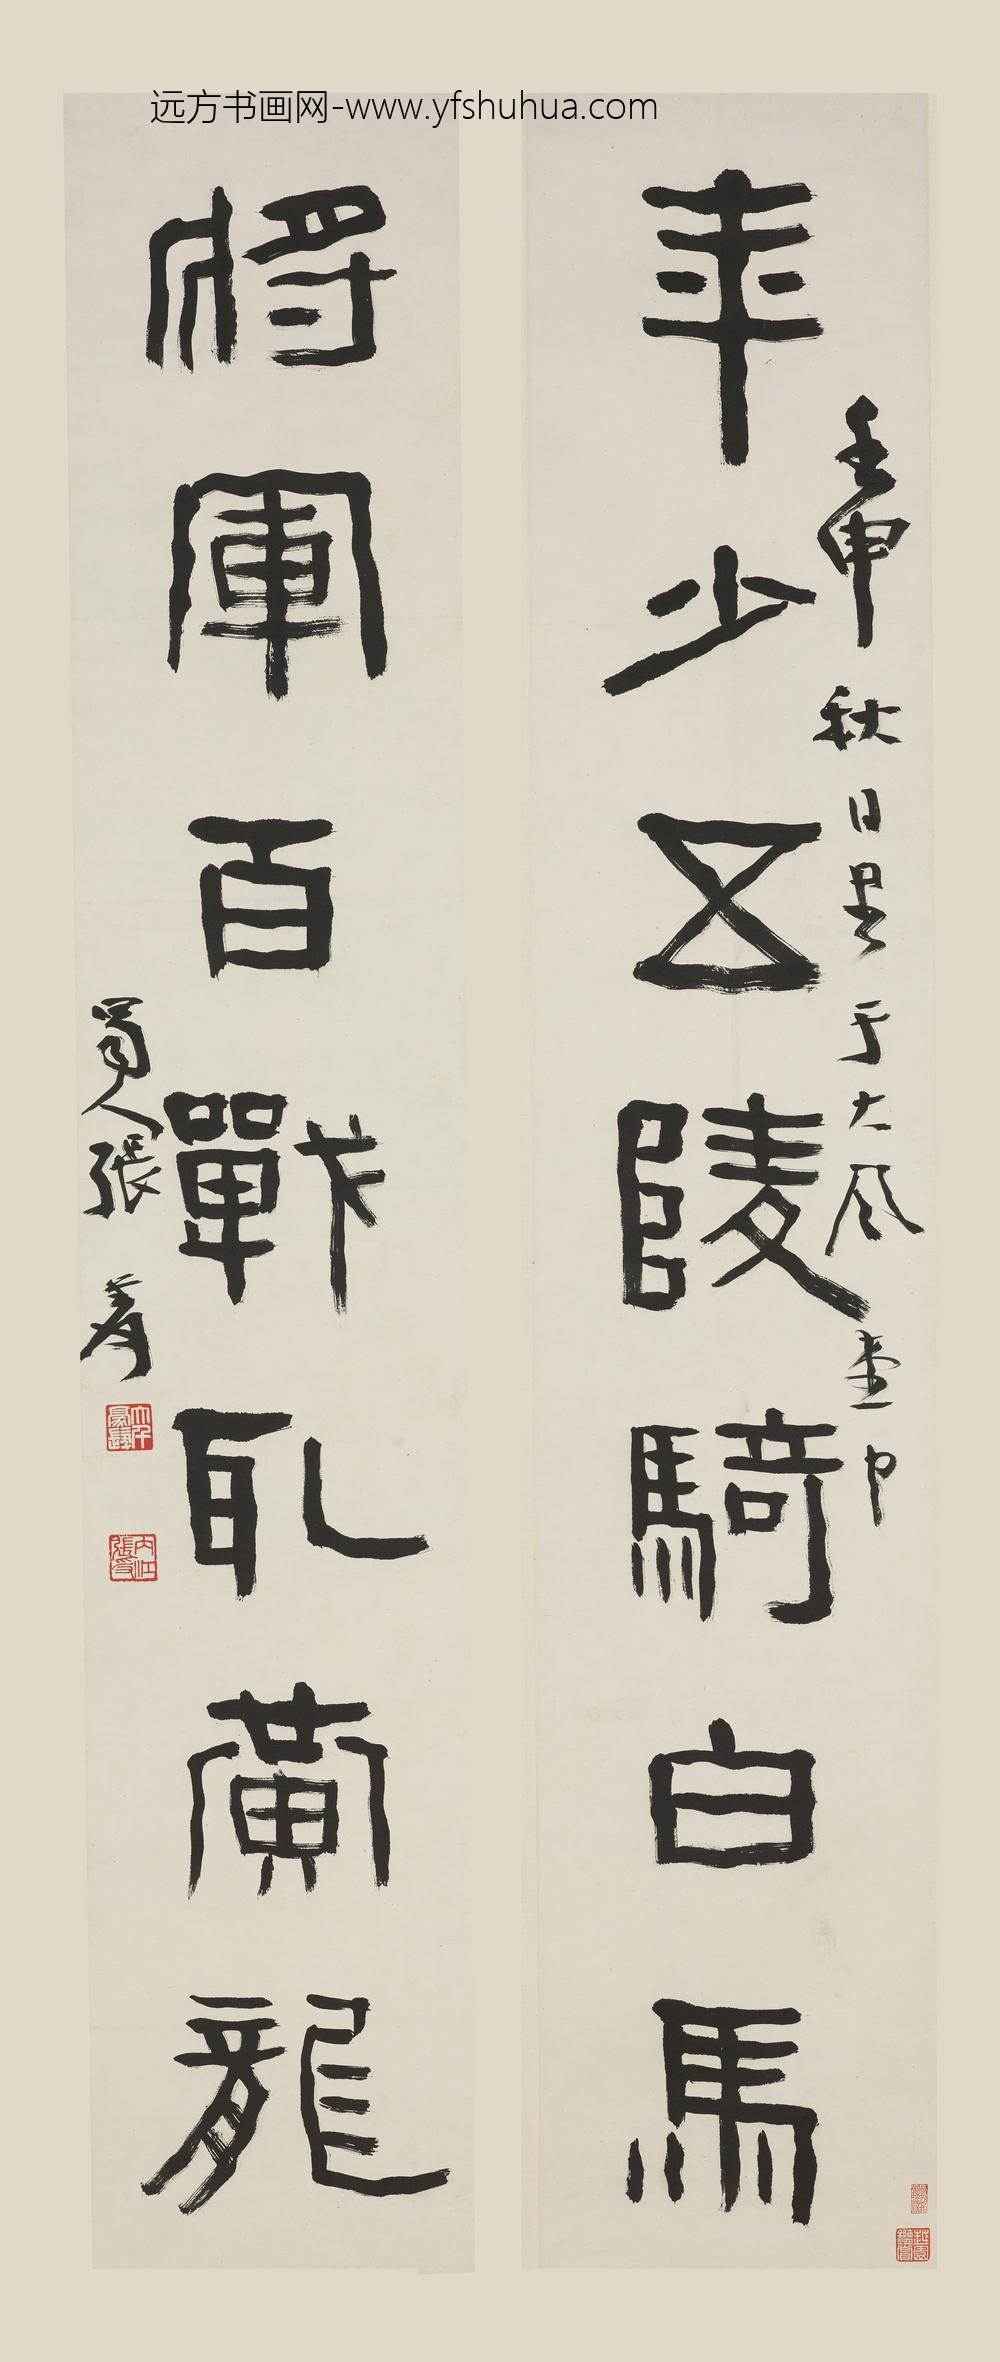 远方书画网-www.yfshuhua.com
年少五陵騎白馬
壬申秋日書于大風堂中
將軍百戰耴黃龍
蜀人張爰
內江張爰